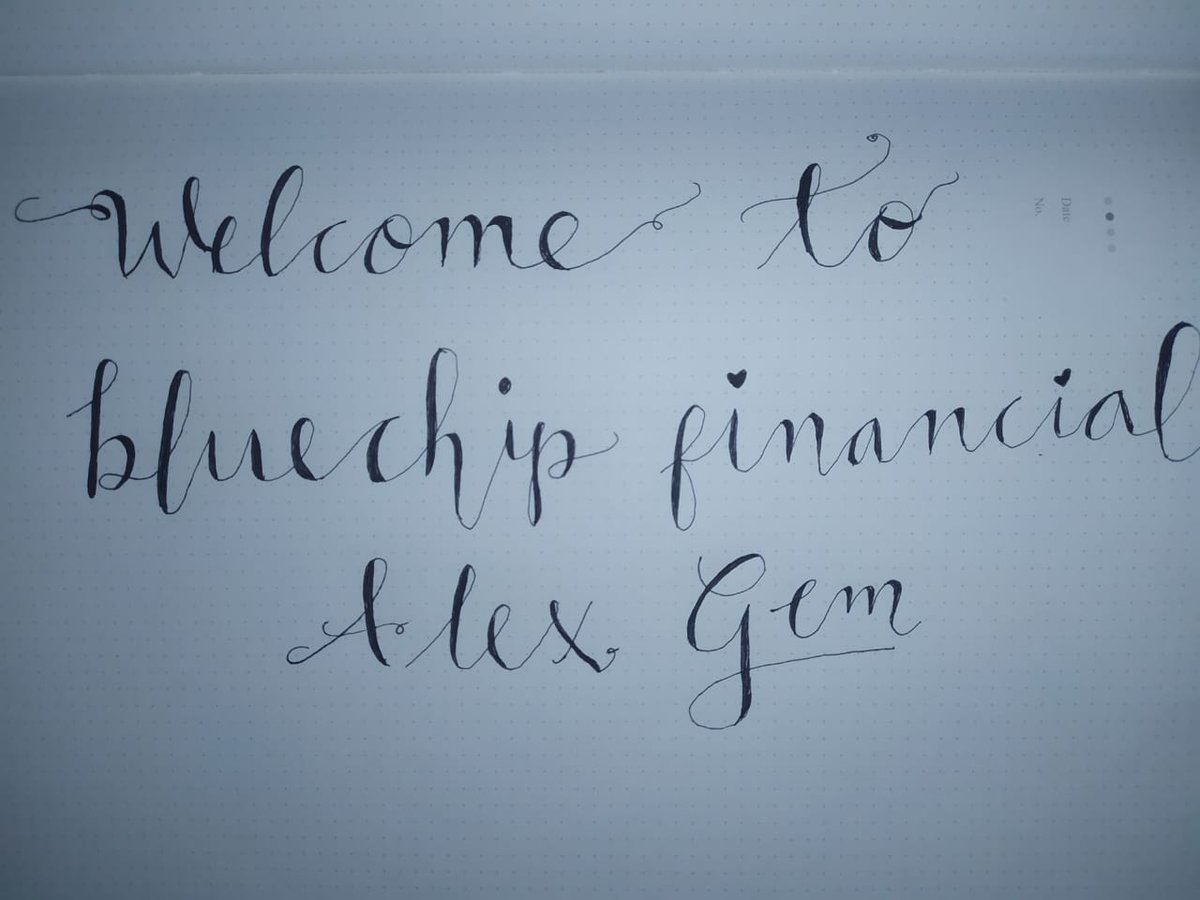 Welcome to
bluechip financial
Alex Gem
Date
No.